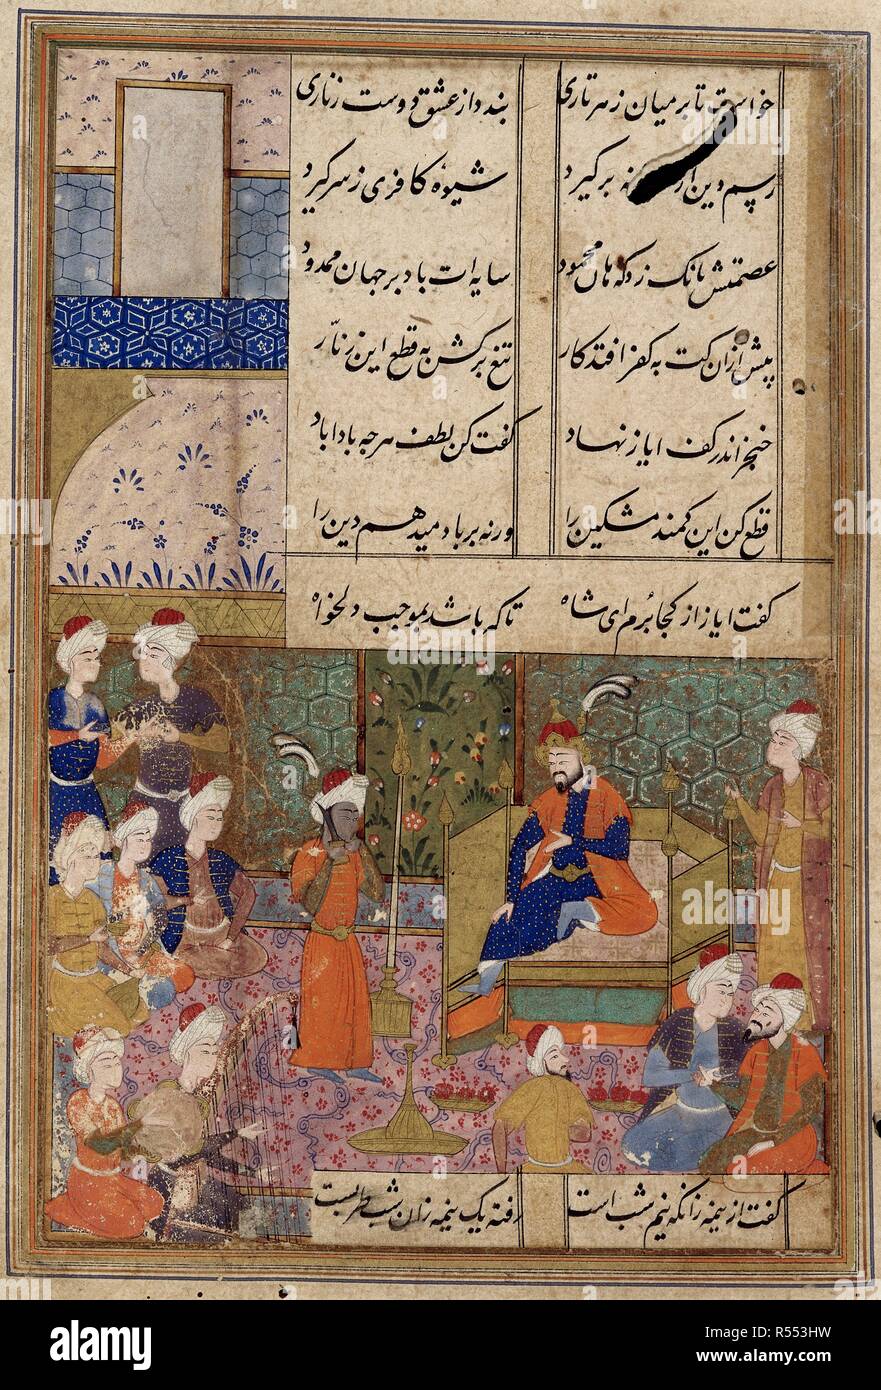 خواست تا بر میان زهر تاری بندد از عشق دوست زناری
رسم دین از برگیرد شیوه کافری ز سر گیرد
عصمتش بانک زد که هان محمود سایه ات باد بر جهان ممدود
پیش ازان کت به کفر افتد کار تیغ برکش به قطع این زنّار
خنجر اندر کف ایاز نهاد گفت کن لطف هرچه بادا باد
قطع کن این کمند مشکین را ورنه بر باد میدهم دین را
گفت ایاز از کجا بُرم ای شاه تا که باشد بموجب دلخواه
گفت از نیمه زانکه نیم شب است رفته یک نیمه زان شب طربست
alamy
Image ID: R553HW
www.alamy.com